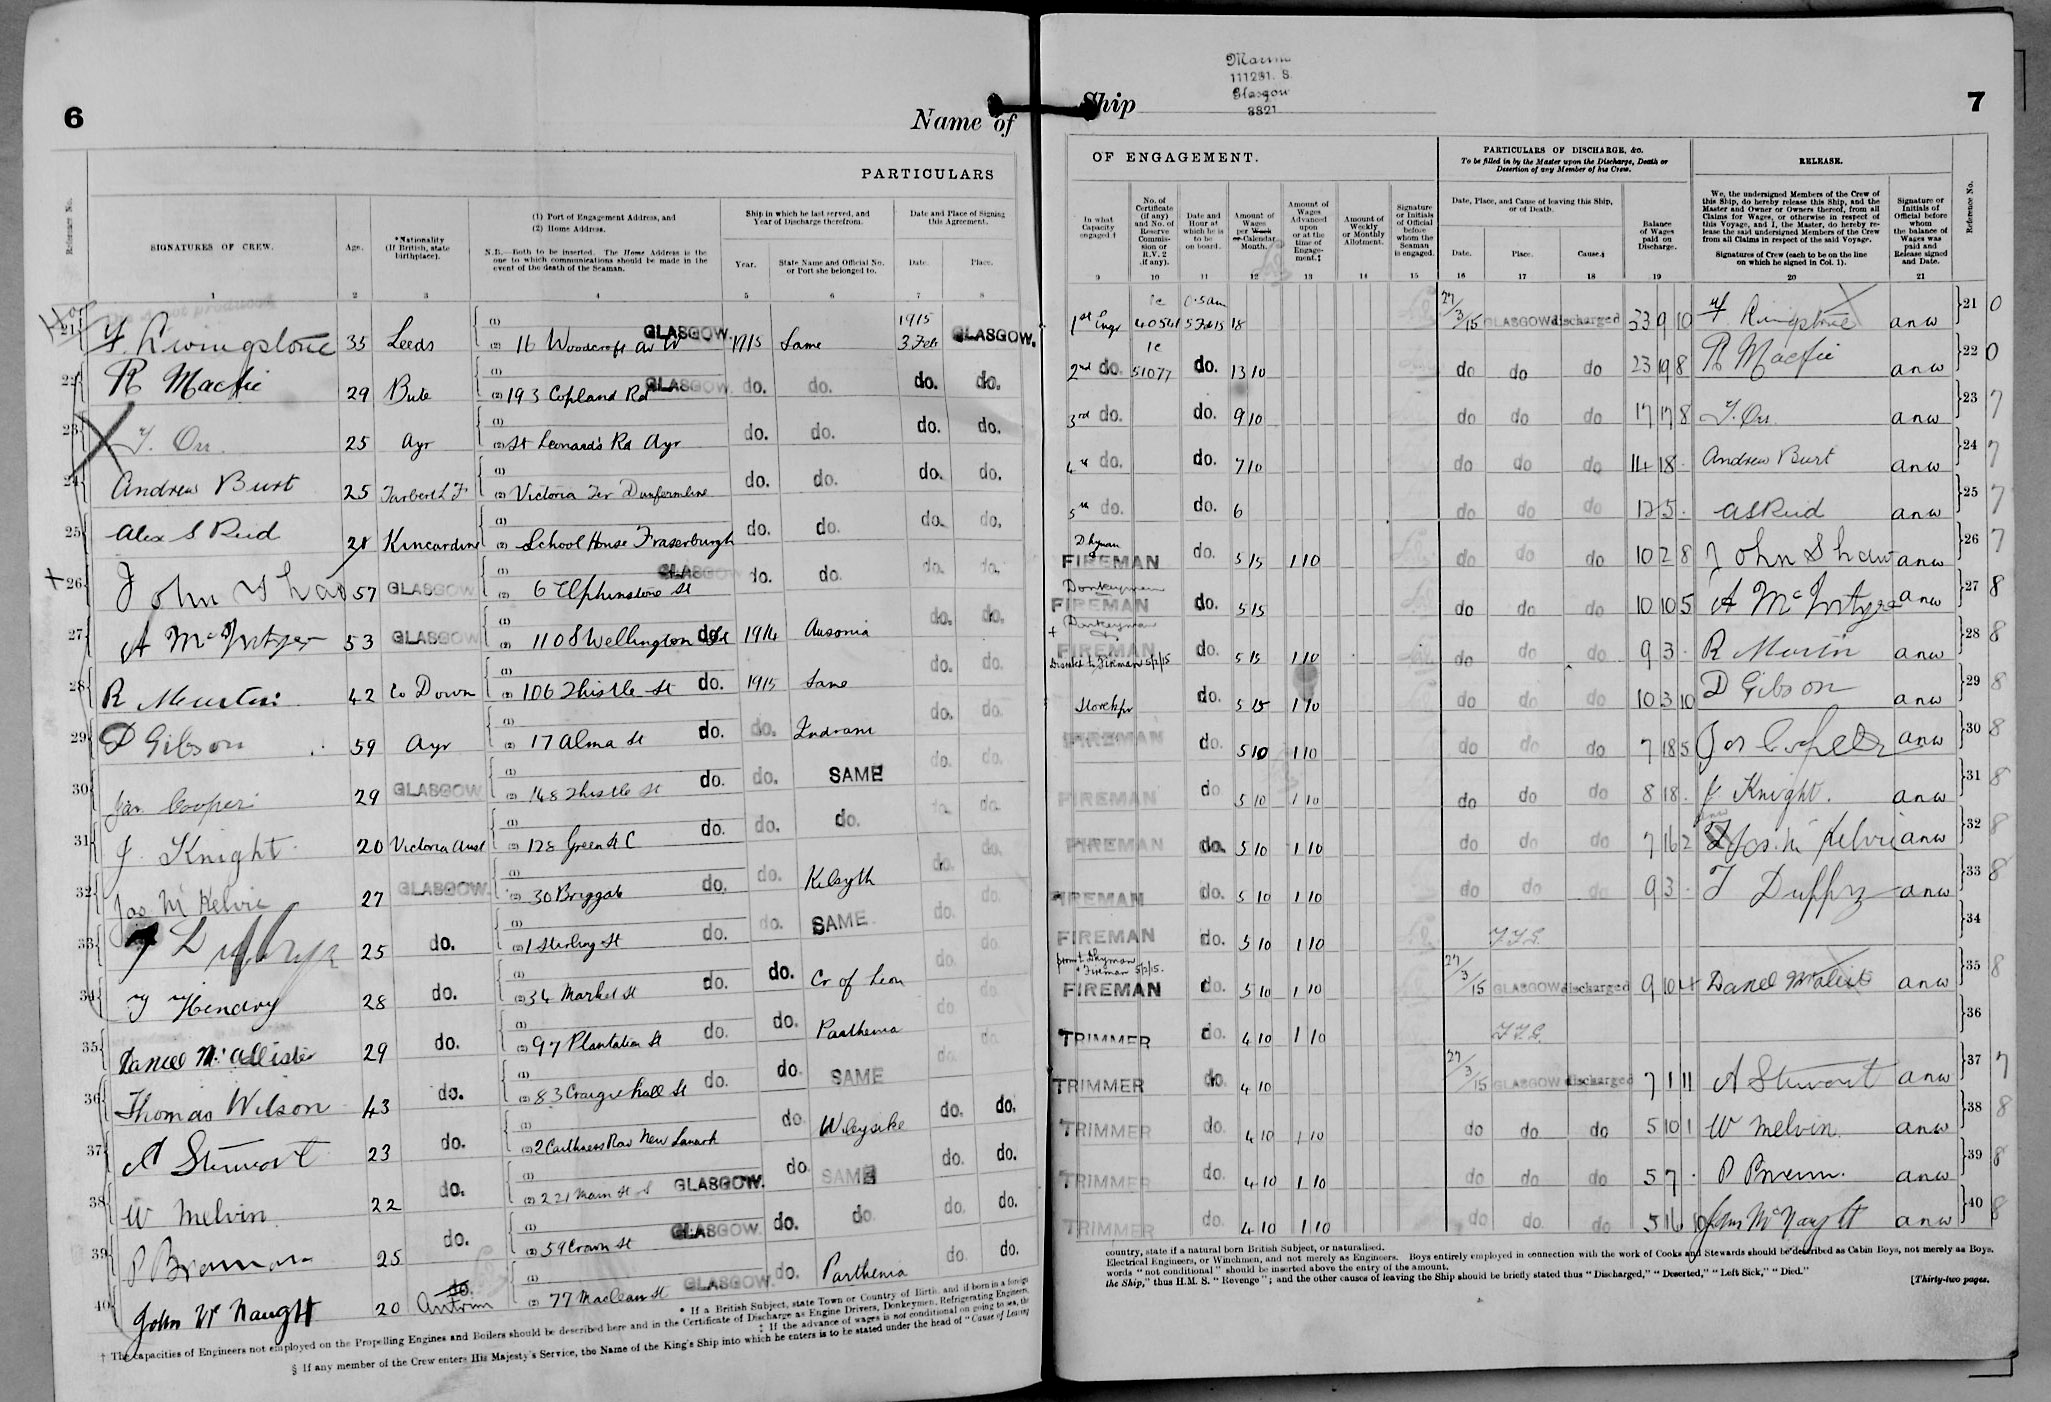 6
Name of
PARTICULARS
Reference No.
SIGNATURES OF CREW.
Age.
*Nationality (If British, state birthplace).
(1) Port of Engagement Address, and
(2) Home Address.
N.B.—Both to be inserted. The Home Address is the one to which communications should be made in the event of the death of the Seaman.
Ship in which he last served, and Year of Discharge therefrom.
Year.
State Name and Official No. or Port she belonged to.
Date and Place of Signing this Agreement.
Date.
Place.
1 2 3 4 5 6 7 8
21 35 Leeds (1) (2) 16 Woodcroft Av W GLASGOW. 1915 Same 1915 3 Feb GLASGOW.
22 R Macfie 29 Bute (1) (2) 193 Copland Rd GLASGOW do. do. do. do.
23 T. Orr 25 Ayr (1) (2) St Leonard's Rd Ayr do. do. do. do.
24 Andrew Burt 25 Tarbert L F (1) (2) Victoria Ter Dunfermline do. do. do. do.
25 Alex S Reid 21 Kincardine (1) (2) School House Fraserburgh do. do. do. do.
26 John Shaw 57 GLASGOW (1) (2) 6 Elphinstone St GLASGOW do. do. do. do.
27 A McIntyre 53 GLASGOW (1) (2) 110 S Wellington St do. 1914 Ausonia do. do.
28 R Martin 42 Co Down (1) (2) 106 Thistle St do. 1915 Same do. do.
29 D Gibson 59 Ayr (1) (2) 17 Alma St do. do. Indrani do. do.
30 Jas Cooper 29 GLASGOW (1) (2) 148 Thistle St do. do. SAME do. do.
31 J. Knight 20 Victoria Aust (1) (2) 128 Green St C do. do. do. do. do.
32 Jas McKelvie 27 GLASGOW. (1) (2) 30 Briggate do. do. Kilsyth do. do.
33 T Duffy 25 do. (1) (2) 1 Stirling St do. do. SAME. do. do.
34 T Hendry 28 do. (1) (2) 34 Market St do. do. Cr of Leon do. do.
35 Daniel McAllister 29 do. (1) (2) 97 Plantation St do. do. Parthenia do. do.
36 Thomas Wilson 43 do. (1) (2) 83 Craigiehall St do. do. SAME do. do.
37 A Stewart 23 do. (1) (2) 2 Caithness Row New Lanark do. do. do.
38 W Melvin 22 do. (1) (2) 221 Main St S GLASGOW. do. SAME do. do.
39 25 do. (1) (2) 59 Crown St GLASGOW. do. do. do. do.
40 John McNaught 20 do. Antrim (1) (2) 77 Maclean St GLASGOW. do. Parthenia do. do.
* If a British Subject, state Town or Country of Birth, and if born in a foreign
† The capacities of Engineers not employed on the Propelling Engines and Boilers should be described here and in the Certificate of Discharge as Engine Drivers, Donkeymen, Refrigerating Engineers,
‡ If the advance of wages is not conditional on going to sea, the
§ If any member of the Crew enters His Majesty's Service, the Name of the King's Ship into which he enters is to be stated under the head of "Cause of Leaving
Ship
111291. S.
Glasgow
7
OF ENGAGEMENT.
PARTICULARS OF DISCHARGE, &c.
To be filled in by the Master upon the Discharge, Death or Desertion of any Member of his Crew.
RELEASE.
In what Capacity engaged †
No. of Certificate (if any) and No. of Reserve Commission or R.V. 2 (if any).
Date and Hour at which he is to be on board.
Amount of Wages per Week or Calendar Month.
Amount of Wages Advanced upon or at the time of Engagement.‡
Amount of Weekly or Monthly Allotment.
Signature or Initials of Official before whom the Seaman is engaged.
Date, Place, and Cause of leaving this Ship, or of Death.
Date.
Place.
Cause.§
Balance of Wages paid on Discharge.
We, the undersigned Members of the Crew of this Ship, do hereby release this Ship, and the Master and Owner or Owners thereof, from all Claims for Wages, or otherwise in respect of this Voyage, and I, the Master, do hereby release the said undersigned Members of the Crew from all Claims in respect of the said Voyage.
Signatures of Crew (each to be on the line on which he signed in Col. 1).
Signature or Initials of Official before whom the balance of Wages was paid and Release signed and Date.
Reference No.
9 10 11 12 13 14 15 16 17 18 19 20 21
1st Engr 40541 5 Feb 15 18 27/3/15 GLASGOW discharged 33 9 10 anw 21 0
2nd do. 51077 do. 13 10 do do do 23 19 8 R Macfie anw 22 0
3rd do. do. 9 10 do do do 17 17 8 T. Orr anw 23 7
4th do. do. 7 10 do do do 14 18 Andrew Burt anw 24 7
5th do. do. 6 do do do 12 5 A S Reid anw 25 7
Dkyman FIREMAN do. 5 15 1 10 do do do 10 2 8 John Shaw anw 26 7
Donkeyman FIREMAN do. 5 15 do do do 10 10 5 A McIntyre anw 27 8
Donkeyman FIREMAN do. 5 15 1 10 do do do 9 3 R Martin anw 28 8
Storekpr do. 5 15 1 10 do do do 10 3 10 D Gibson anw 29 8
FIREMAN do. 5 10 1 10 do do do 7 18 5 Jas Cooper anw 30 8
FIREMAN do 5 10 1 10 do do do 8 18 J Knight. anw 31 8
FIREMAN do. 5 10 1 10 do do do 7 16 2 Jos. McKelvie anw 32 8
FIREMAN do. 5 10 1 10 do do do 9 3 T Duffy anw 33 8
FIREMAN do. 5 10 1 10 F.T.S. 34
prom to Dkyman + Fireman 5/2/15. FIREMAN do. 5 10 1 10 27/3/15 GLASGOW discharged 9 10 4 Daniel McAlister anw 35 8
TRIMMER do. 4 10 1 10 F.T.S. 36
TRIMMER do. 4 10 27/3/15 GLASGOW discharged 7 1 11 A Stewart anw 37 7
TRIMMER do. 4 10 1 10 do do do 5 10 1 W Melvin anw 38 8
TRIMMER do. 4 10 1 10 do do do 5 7 anw 39 8
TRIMMER do. 4 10 1 10 do do do 5 16 10 John McNaught anw 40 8
country, state if a natural born British Subject, or naturalised.
Electrical Engineers, or Winchmen, and not merely as Engineers. Boys entirely employed in connection with the work of Cooks and Stewards should be described as Cabin Boys, not merely as Boys.
words "not conditional" should be inserted above the entry of the amount.
the Ship," thus H.M. S. "Revenge"; and the other causes of leaving the Ship should be briefly stated thus "Discharged," "Deserted," "Left Sick," "Died."
[Thirty-two pages.